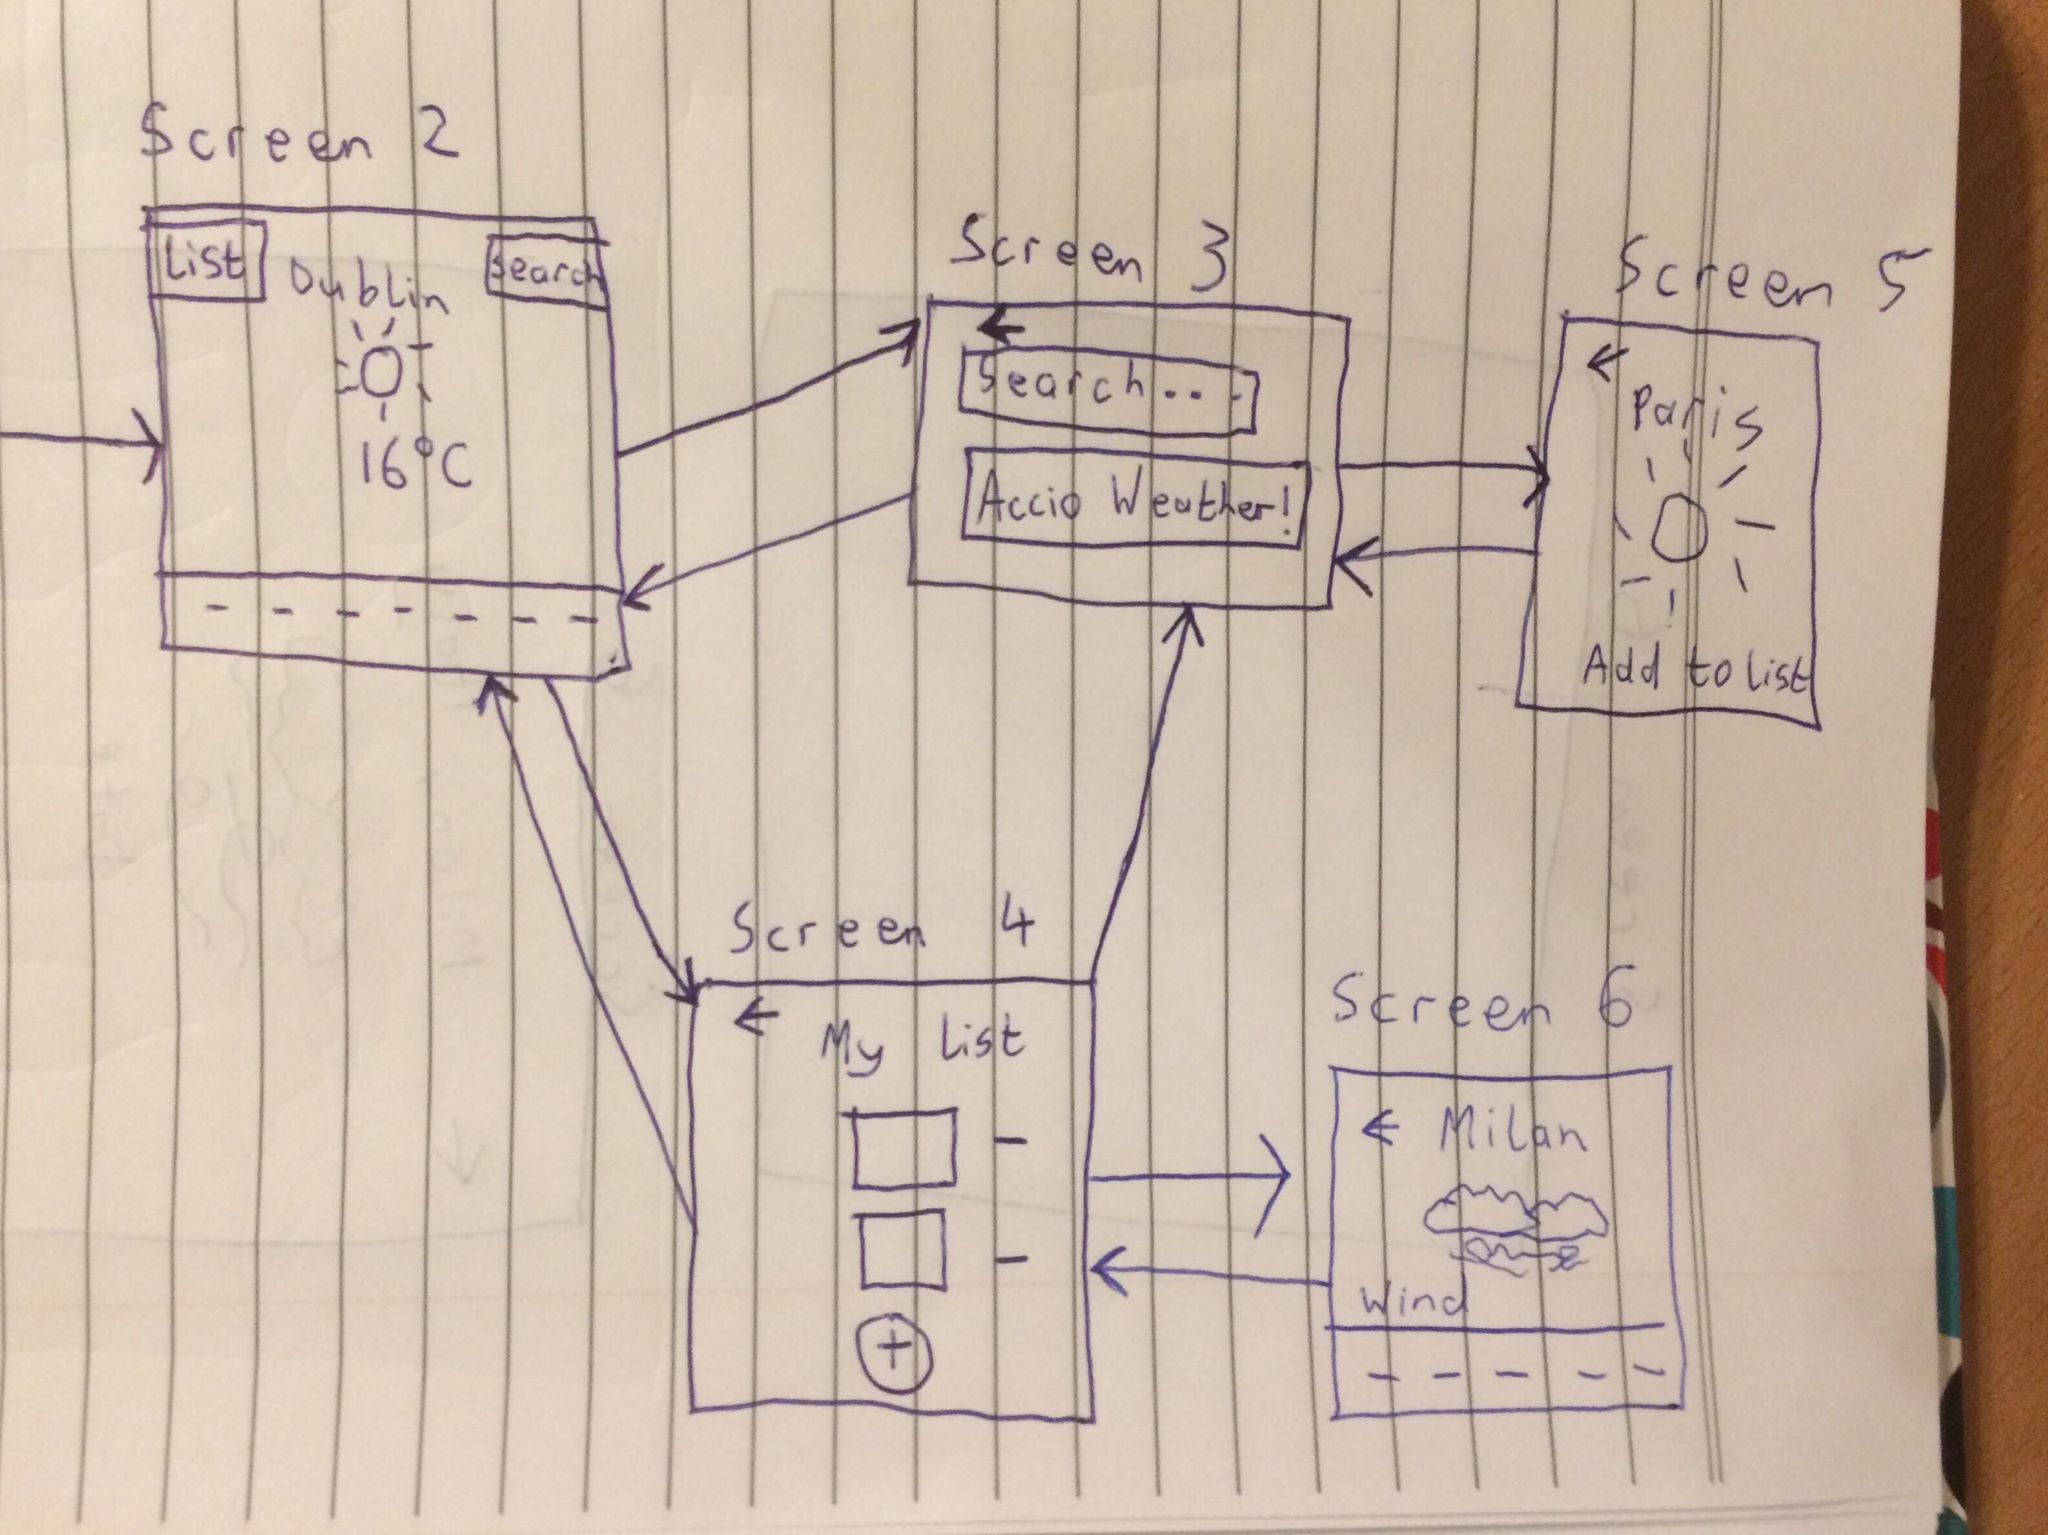 Screen 2
List
Dublin
Search
16°C
- - - - - - -
Screen 3
←
Search...
Accio Weather!
Screen 5
←
Paris
Add to list
Screen 4
←
My list
-
-
+
Screen 6
←
Milan
Wind
- - - - -